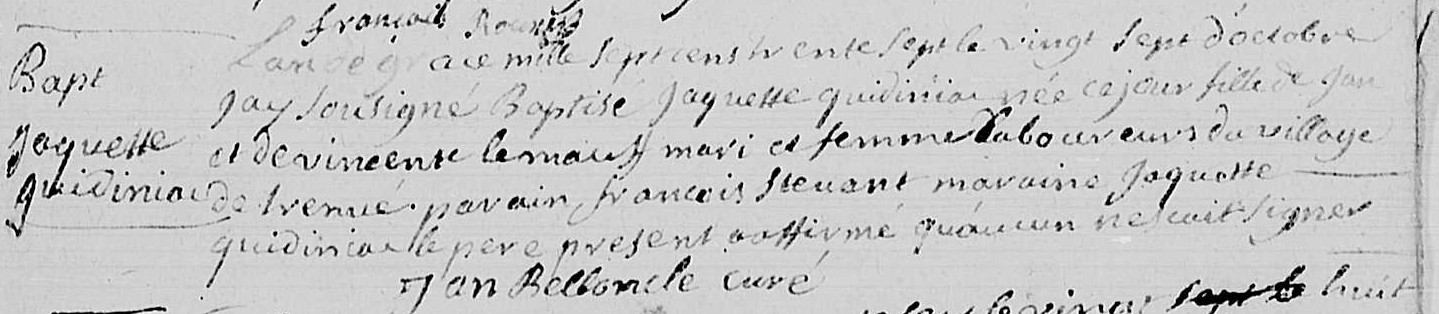 françois
Bapt
Jaquette
guidiniac
Lan de grace mille sept cens trente sept le vingt sept d'octobre
Jay sousigné Baptisé Jaquette guidiniac née ce jour fille de Jan
et de vincente le mauff mari et femme Laboureurs du village
de trenué. parain françois stevant maraine Jaquette
guidiniac le pere present a affirmé qu'aucun ne scait signer
Jan Belloncle curé
le vingt sept le huit